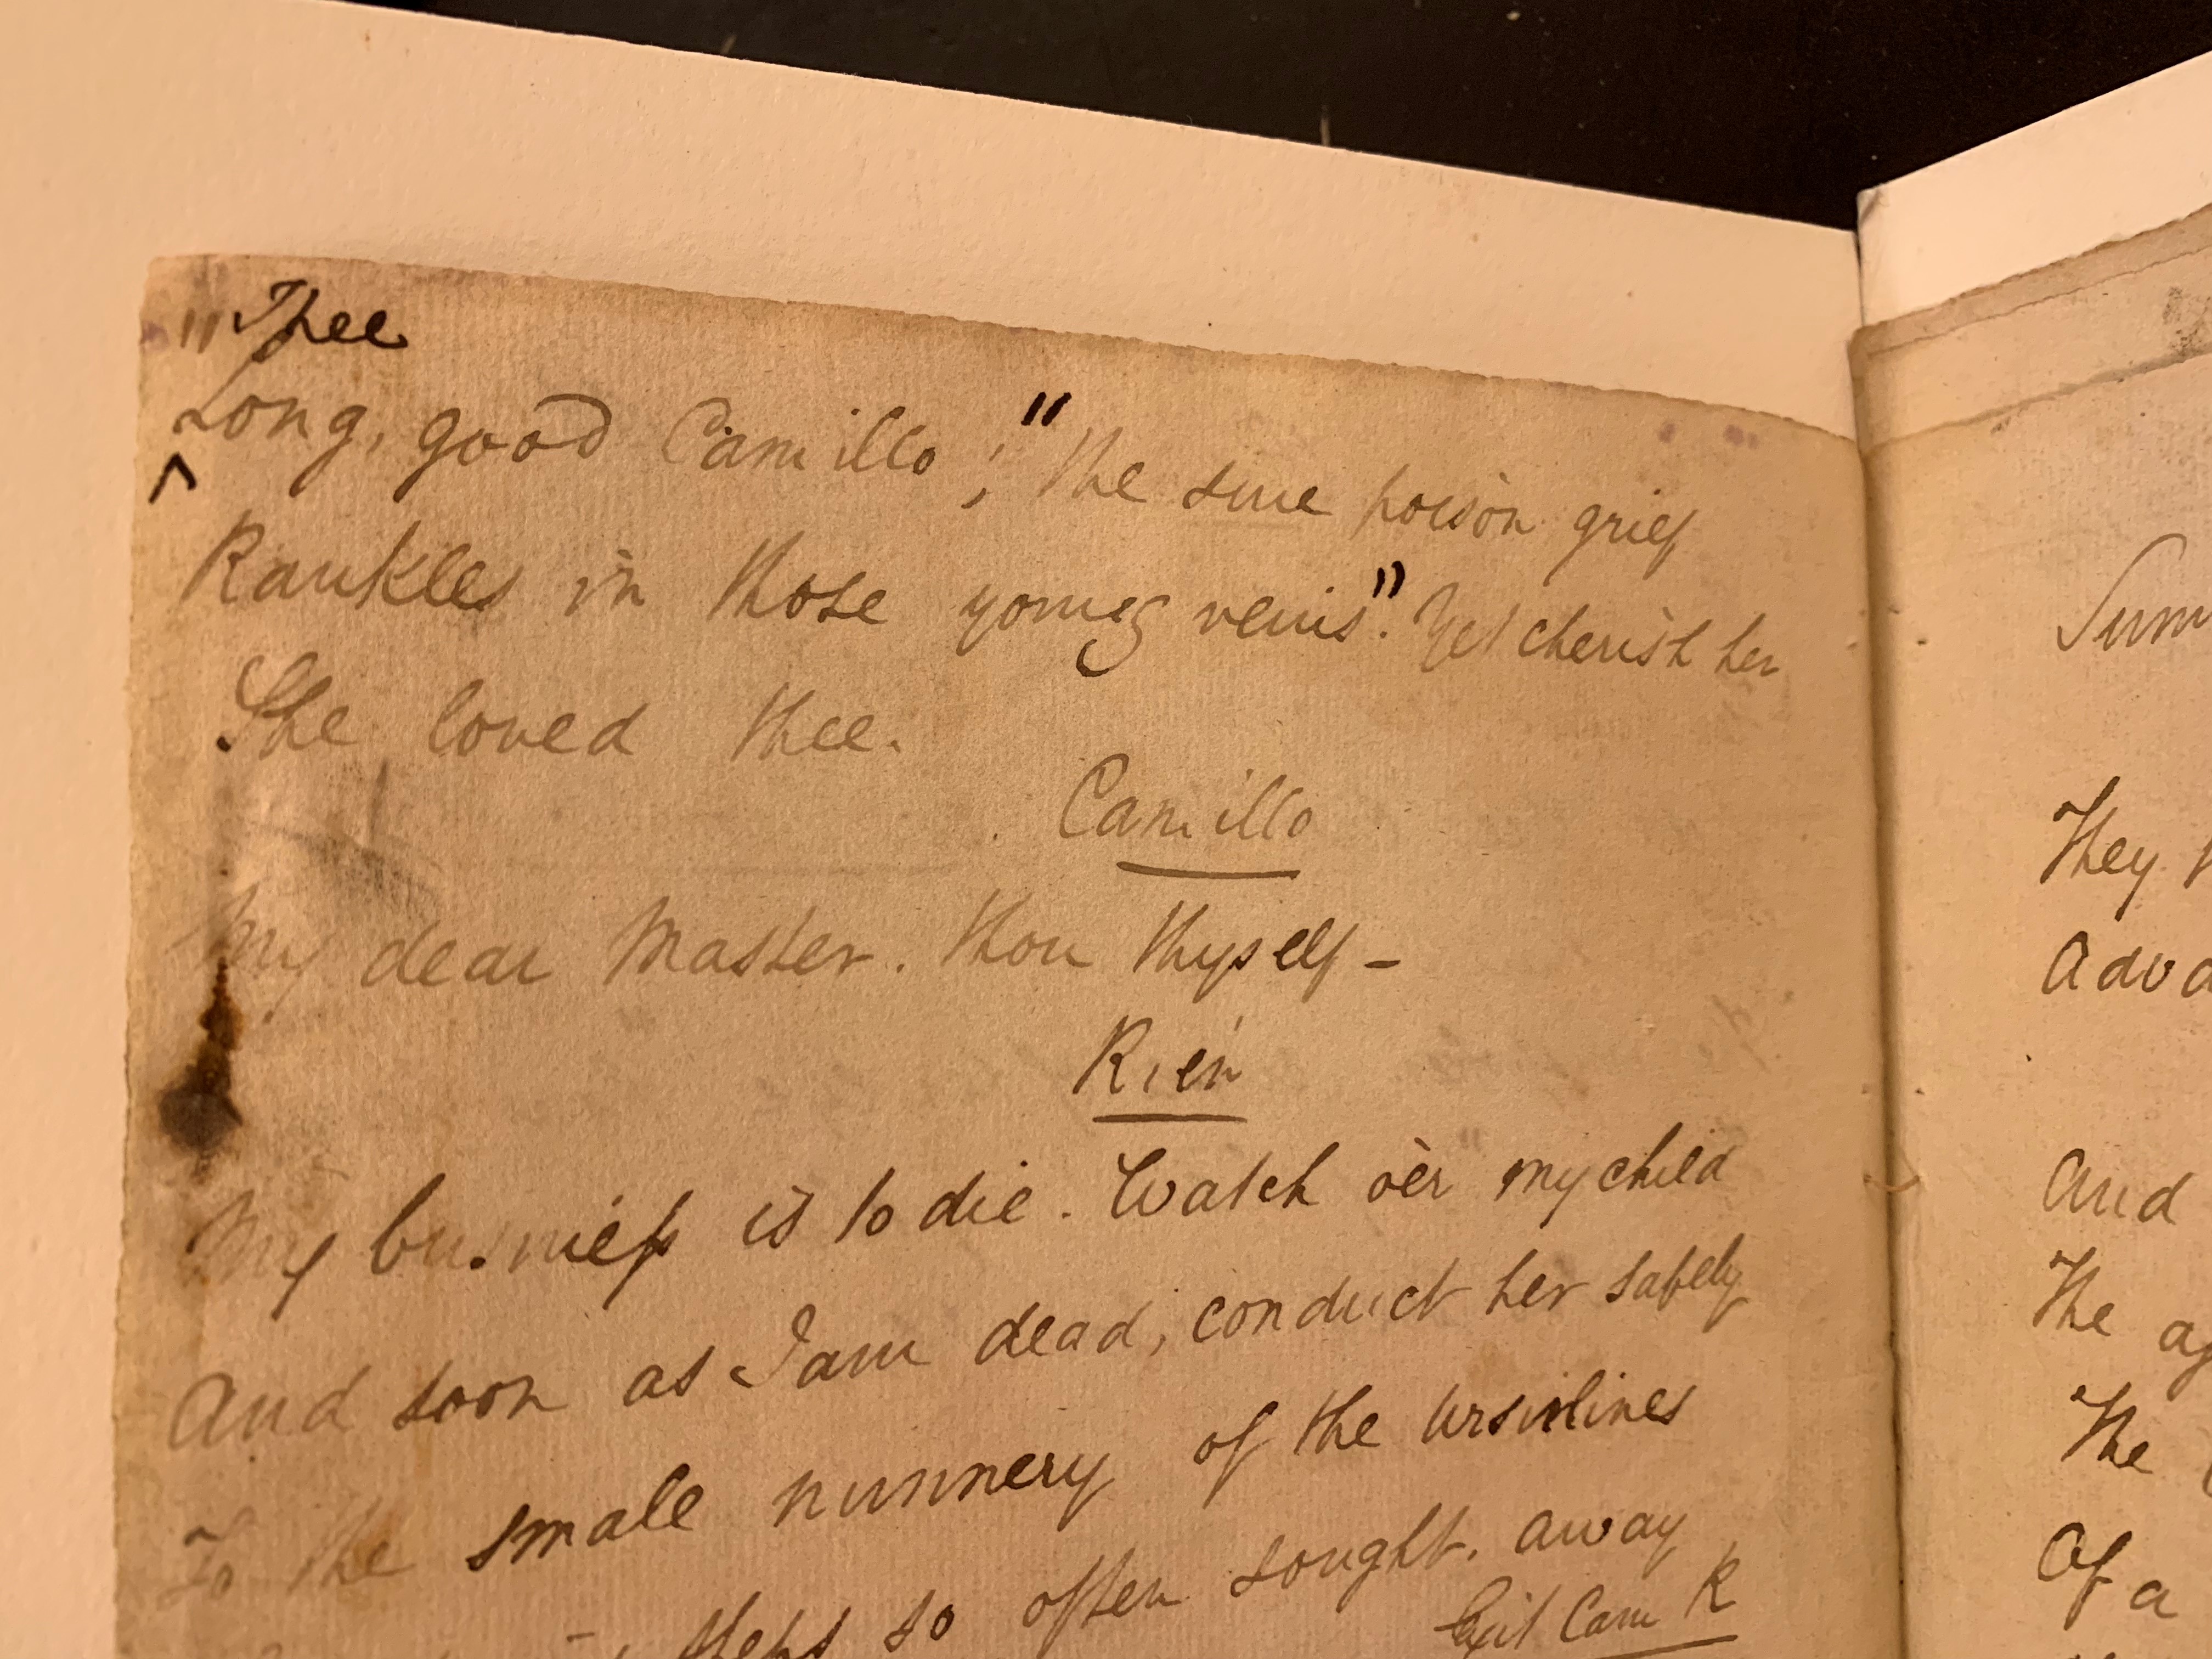 "Thee
^ Long, good Camillo;" the sure poison grief
Rankles in those young veins". Yet cherish her
She loved thee.
Camillo
My dear Master. Thou thyself -
Rien
My business is to die. Watch o'er my child
And soon as I am dead, conduct her safely
To the small nunnery of the Ursulines
steps so often sought. away
Exit Cam R
They
And
The
The
Of a